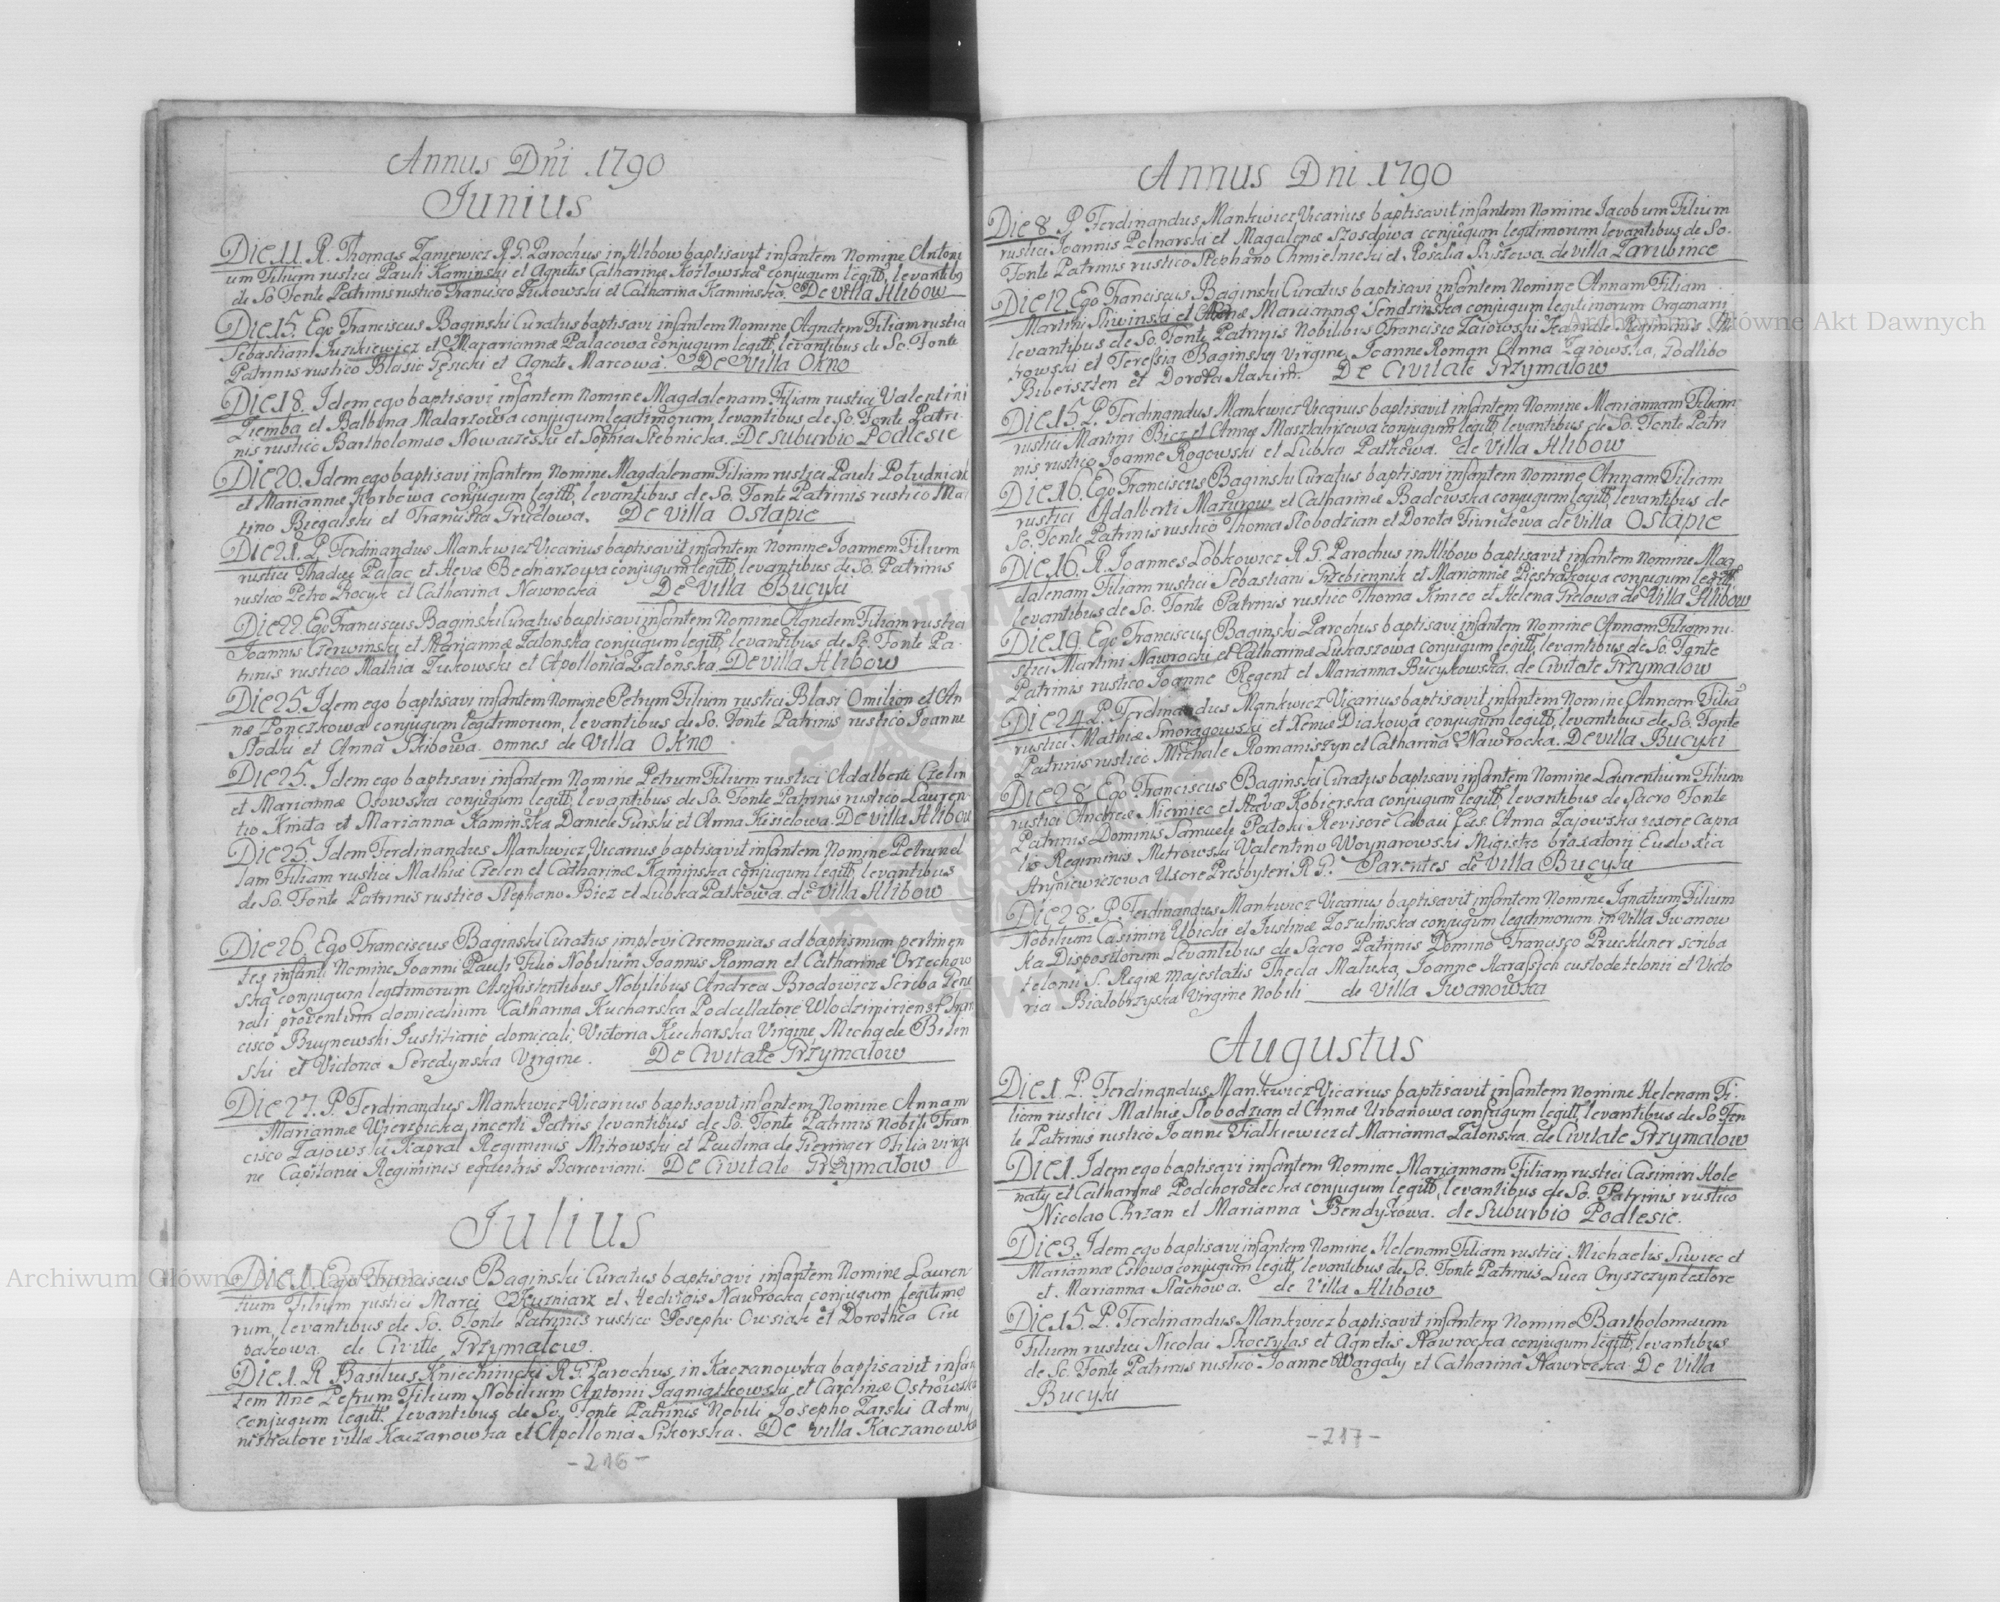 Annus Dni 1790
Junius
Die 11. R. Thomas Laniewicz R. G. Parochus in Hlibow baptisavit infantem Nomine Antoni
um Filium rustici Pauli Kaminski et Agnetis Catharinæ Kozlowska conjugum legitt, levantibg
de So Fonte Patrinis rustico Francisco Zukowski et Catharina Kaminska. De villa Hlibow
Die 15. Ego Franciscus Baginski Curatus baptisavi infantem Nomine Agnetem Filiam rustici
Sebastiani et Mariannæ Palacowa conjugum legitt, levantibus de So. Fonte
Patrinis rustico Blasio et Agnete Marcowa. De Villa Okno
Die 18. Idem ego baptisavi infantem Nomine Magdalenam Filiam rustici Valentini
Ziemba et Balbina Malarzowa conjugum legitimorum, levantibus de So. Fonte Patri-
nis rustico Bartholomæo et Sophia Slebnicka. De Suburbio Podlesie
Die 20. Idem ego baptisavi infantem Nomine Magdalenam Filiam rustici Pauli Poludniak
et Mariannæ Korbowa conjugum legitt, levantibus de So. Fonte Patrinis rustico Ma
tino Biegalski et Franciska. De Villa Ostapie
Die 21. P. Ferdinandus Mankwicz Vicarius baptisavit infantem Nomine Joannem Filium
rustici Thadeæ Palac et Hevæ Bednarzowa conjugum legitt, levantibus de So. Patrinis
rustico Petro Procyk et Catharina Nawrocka De Villa Bucyki
Die 22. Ego Franciscus Baginski Curatus baptisavi infantem Nomine Agnetem Filiam rustici
Joannis Czerwinski et Mariannæ Zalonska conjugum legitt, levantibus de So Fonte Pa-
trinis rustico Mathia Zukowski et Apollonia Zalonska. De villa Hlibow
Die 25. Idem ego baptisavi infantem Nomine Petrum Filium rustici Blasi Omilion et An
næ Ponczkowa conjugum legitimorum, levantibus de So. Fonte Patrinis rustico Joanne
Slodki et Anna Skibowa. omnes de Villa Okno
Die 25. Idem ego baptisavi infantem Nomine Petrum Filium rustici Adalberti Czelin
et Mariannæ Osowska conjugum legitt, levantibus de So. Fonte Patrinis rustico Lauren
tio Kmita et Marianna Kaminska Daniele Gurski et Anna Kisielowa. De villa Hlibow
Die 25. Idem Ferdinandus Mankwicz Vicarius baptisavit infantem Nomine Petrunel
lam Filiam rustici Mathiæ Czelen et Catharinæ Kaminska conjugum legitt, levantibus
de So. Fonte Patrinis rustico Stephano Biez et Lubka Patkowa. de villa Hlibow
Die 26. Ego Franciscus Baginski Curatus implevi ceremonias ad baptismum pertinen
tes infanti Nomine Joanni Pauli Filio Nobilium Joannis Roman et Catharinæ Orzechow
ska conjugum legitimorum Assistentibus Nobilibus Andrea Brodowicz Scriba Gene
rali proventum domicalium Catharina Kucharska Podcellatore Wlodzimiriensi Fran
cisco Buynowski Justitiario domicali, Victoria Kucharska Virgine, Michaele Bilin
ski et Victoria Seredynska Virgine. De Civitate Grzymalow
Die 27. P. Ferdinandus Mankwicz Vicarius baptisavit infantem Nomine Annam
Mariannæ Wierzbicka, incerti Patris levantibus de So. Fonte Patrinis Nobili Fran
cisco Zajowski Kapral Regiminis Mitrowski et de Geringer Filia virgi
ne Capitanei Regiminis equestris. De Civitate Grzymalow
Julius
Die 1. Ego Franciscus Baginski Curatus baptisavi infantem Nomine Lauren
tium Filium rustici Marci Kuzniarz et Hedvigis Nawrocka conjugum legitimo
rum, levantibus de So. Fonte Patrinis rustico Josepho Owsiak et Dorothea Ciu
pakowa. de Civitte Grzymalow.
Die 1. R Basilius R. G. Parochus in Kaczanowka baptisavit infan
tem Nne Petrum Filium Nobilium Antonii Jagniatkowski et Carolinæ Ostrowska
conjugum legitt. levantibus de So. Fonte Patrinis Nobili Josepho Zarski Admi
nistratore villæ Kaczanowka et Apollonia Sikorska. De Villa Kaczanowka
-216-
Annus Dni 1790
Die 8. P. Ferdinandus Mankwicz Vicarius baptisavit infantem Nomine Jacobum Filium
rustici Joannis Polnarski et Magalenæ conjugum legitimorum levantibus de So.
Fonte Patrinis rustico Stephano Chmielnicki et Rosalia. de villa Zarubince
Die 12. Ego Franciscus Baginski Curatus baptisavi infantem Nomine Annam Filiam
Martini Sliwinski et Mariannæ Sendzinska conjugum legitimorum Organarii
levantibus de So. Fonte Patrinis Nobilibus Francisco Zaiowski Regiminis Mi
trowski et Teressia Baginskey Virgine, Joanne Roman Anna Zaiowska, Podlibo
Biberszten et Dorota. De Civitate Grzymalow
Die 15. P. Ferdinandus Mankwicz Vicarius baptisavit infantem Nomine Mariannam Filiam
rustici Martini Biez et Annæ conjugum legitt, levantibus de So. Fonte Patri
nis rustico Joanne Rogowski et Lubka Patkowa. de Villa Hlibow
Die 16. Ego Franciscus Baginski Curatus baptisavi infantem Nomine Annam Filiam
rustici Adalberti Mazurow et Catharinæ Badowska conjugum legitt, levantibus de
So. Fonte Patrinis rustico Thoma Slobodzian et Dorota de villa Ostapie
Die 16. R. Joannes Lobkowicz R. G. Parochus in Hlibow baptisavit infantem Nomine Mag
dalenam Filiam rustici Sebastiani Grzebiennik et Mariannæ Piestrakowa conjugum legitt
levantibus de So. Fonte Patrinis rustico Thoma Kmiec et Helena. de Villa Hlibow
Die 19. Ego Franciscus Baginski Parochus baptisavi infantem Nomine Annam Filiam ru-
stici Martini Nawrocki et Catharinæ Lukaszowa conjugum legitt, levantibus de So. Fonte
Patrinis rustico Joanne Regent et Marianna Bucykowska. de Civitate Grzymalow
Die 24. P. Ferdinandus Mankwicz Vicarius baptisavit infantem Nomine Annam Filiã
rustici Mathiæ Smoragowski et Xenus Diakowa conjugum legitt, levantibus de So. Fonte
Patrinis rustico Michale Romaniszyn et Catharina Nawrocka. De villa Bucyki
Die 28. Ego Franciscus Baginski Curatus baptisavi infantem Nomine Laurentium Filium
rustici Andreæ Niemiec et Hevæ Kobierska conjugum legitt, levantibus de Sacro Fonte
Patrinis Dominis Samuele Patoki Revisore, Anna Zajowska uxore Capra
lis Regiminis Mitrowski Valentino Woynarowski Migistro braxatorii Eudoxia
Aryniewiczowa Uxore Presbyteri R. G. Parentes de Villa Bucyki
Die 28. P. Ferdinandus Mankwicz Vicarius baptisavit infantem Nomine Ignatium Filium
Nobilium Casimiri Ubicki et Justinæ Zozulinska conjugum legitimorum in Villa Iwanow
ka Dispositorum Levantibus de Sacro Patrinis Domino Francisco Prucklner scriba
telonii S. Regiæ Majestatis Thecla Maluka, Joanne Harasych custode telonii et Victo
ria Bialobrzyska Virgine Nobili de Villa Iwanowka
Augustus
Die 1. P. Ferdinandus Mankwicz Vicarius baptisavit infantem Nomine Helenam Fi-
liam rustici Mathiæ Slobodzian et Annæ Urbanowa conjugum legitt, levantibus de So Fon
te Patrinis rustico Joanne Fialkiewicz et Marianna Zalonska. de Civitate Grzymalow
Die 1. Idem ego baptisavi infantem Nomine Mariannam Filiam rustici Casimiri Hole
naty et Catharinæ Podchorodecka conjugum legitt, levantibus de So. Patrinis rustico
Nicolao Chrzan et Marianna Bendykowa. de Suburbio Podlesie.
Die 3. Idem ego baptisavi infantem Nomine Helenam Filiam rustici Michaelis Siwiec et
Mariannæ Esłowa conjugum legitt, levantibus de So. Fonte Patrinis Luca Oryszczyn textore
et Marianna Stachowa. de Villa Hlibow
Die 15. P. Ferdinandus Mankwicz baptisavit infantem Nomine Bartholomæum
Filium rustici Nicolai Skoczylas et Agnetis Nawrocka conjugum legitt, levantibus
de So. Fonte Patrinis rustico Joanne Wargaty et Catharina Nawrocka. De Villa
Bucyki
-217-
Archiwum Główne Akt Dawnych
Archiwum Główne Akt Dawnych